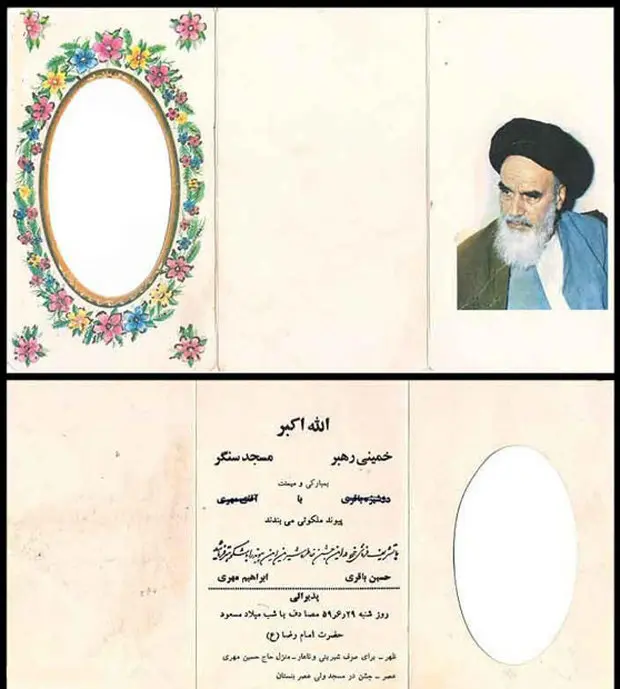 الله اکبر
خمینی رهبر مسجد سنگر
بمبارکی و میمنت
دوشیزه باقری با آقای مهری
پیوند ملکوتی می بندند
با تشریف فرمائی خود در این جشن
حسین باقری ابراهیم مهری
پذیرائی
روز شنبه ۵۹/۶/۲۹ مصادف با شب میلاد مسعود
حضرت امام رضا (ع)
ظهر ـ برای صرف شیرینی و ناهار ـ منزل حاج حسین مهری
عصر ـ جشن در مسجد ولی عصر بنستان